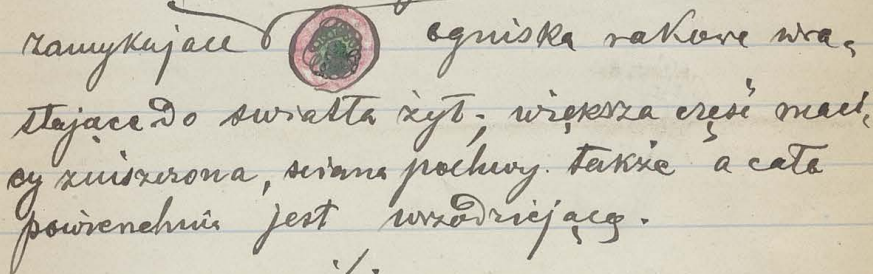 zamykające ogniska rakowe wra-
stające do swiatła żył; większa część maci-
cy zniszczona, sciana pochwy także a cała
powierzchnia jest wrzodziejącą.
./.